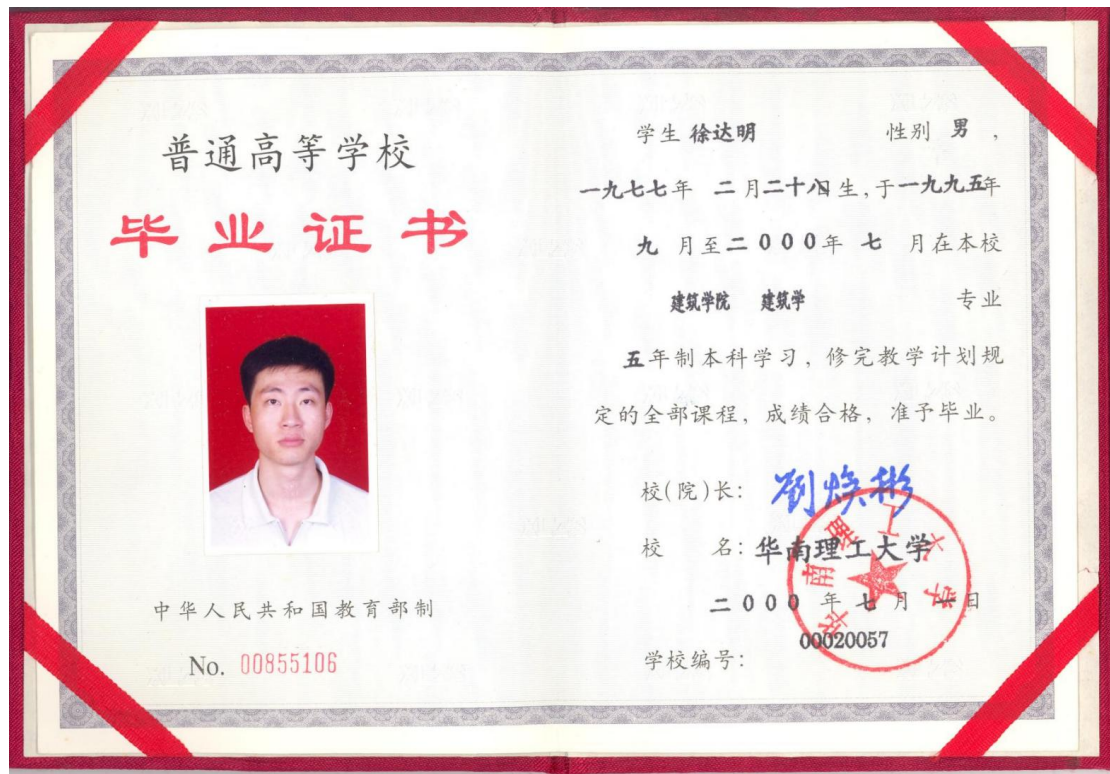 普通高等学校
毕业证书
中华人民共和国教育部制
No. 00855106
学生 徐达明 性别 男 ,
一九七七年 二月二十八日生,于一九九五年
九 月至二000年 七 月在本校
建筑学院 建筑学 专业
五年制本科学习, 修完教学计划规
定的全部课程, 成绩合格, 准予毕业。
校(院)长: 刘焕彬
校 名: 华南理工大学
华南理工大学
二000 年七月一日
学校编号: 00020057